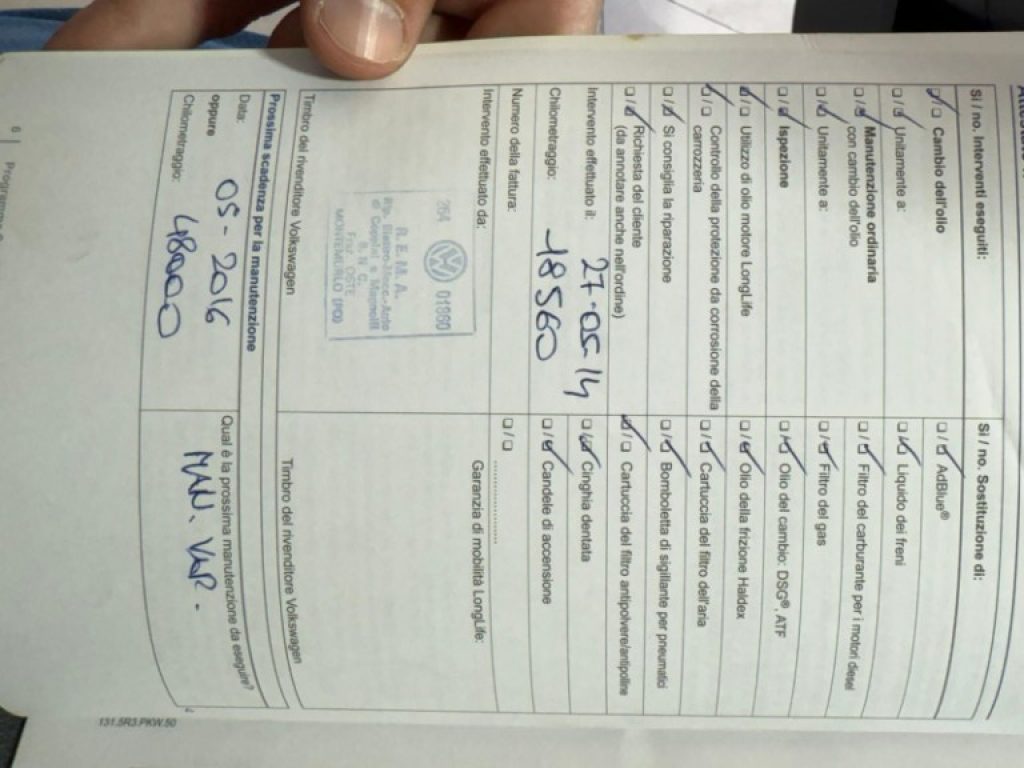 Si / no. Interventi eseguiti:
☑ / ☐ Cambio dell'olio
☐ / ☑ Unitamente a:
☐ / ☑ Manutenzione ordinaria
con cambio dell'olio
☐ / ☑ Unitamente a:
☐ / ☑ Ispezione
☑ / ☐ Utilizzo di olio motore LongLife
☑ / ☐ Controllo della protezione da corrosione della
carrozzeria
☐ / ☑ Si consiglia la riparazione
☐ / ☑ Richiesta del cliente
(da annotare anche nell'ordine)
Intervento effettuato il: 27-05-14
Chilometraggio: 18560
Numero della fattura:
Intervento effettuato da:
264 01860
R.E.M.A.
di Contini e
S.N.C.
Fraz. OSTE
MONTEMURLO (PO)
Timbro del rivenditore Volkswagen
Si / no. Sostituzione di:
☐ / ☑ AdBlue®
☐ / ☑ Liquido dei freni
☐ / ☑ Filtro del carburante per i motori diesel
☐ / ☑ Filtro del gas
☐ / ☑ Olio del cambio: DSG®, ATF
☐ / ☑ Olio della frizione Haldex
☐ / ☑ Cartuccia del filtro dell'aria
☐ / ☑ Bomboletta di sigillante per pneumatici
☑ / ☐ Cartuccia del filtro antipolvere/antipolline
☐ / ☑ Cinghia dentata
☐ / ☑ Candele di accensione
☐ / ☐ ...............
Garanzia di mobilità LongLife:
Timbro del rivenditore Volkswagen
Prossima scadenza per la manutenzione
Data: 05-2016
oppure
Chilometraggio: 48000
Qual è la prossima manutenzione da eseguire?
MAN. VAR.
6
131.5R3.PKW.50